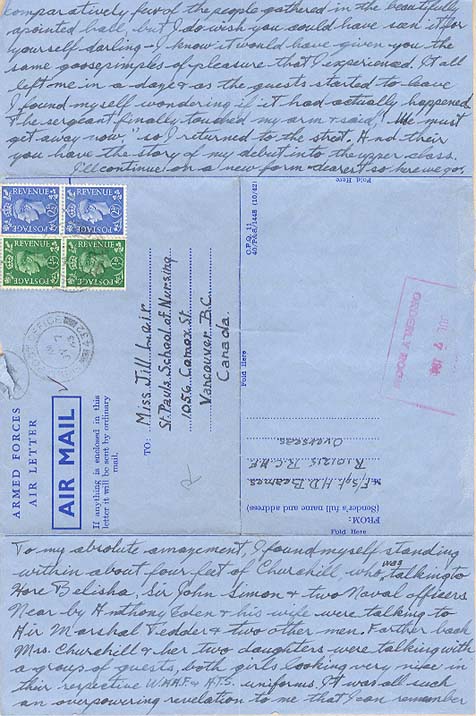 comparatively few of the people gathered in the beautifully
apointed hall, but I do wish you could have seen it for
yourself darling - I know it would have given you the
same goosepimples of pleasure that I experienced. It all
left me in a daze & as the guests started to leave
I found myself wondering if it had actually happened
& the sergeant finally touched my arm & said, "We must
get away now" so I returned to the street. And their
you have the story of my debut into the upper class.
I'll continue on a new form dearest so here we go:
REVENUE
POSTAGE
REVENUE
POSTAGE
REVENUE
POSTAGE
REVENUE
POSTAGE
ARMED FORCES
AIR LETTER
AIR MAIL
If anything is enclosed in this
letter it will be sent by ordinary
mail.
TO:
Miss. Jill Lair
St. Pauls School of Nursing
1056 Comox St
Vancouver B.C.
Canada
Fold Here
C.P.Q. 11
40/P.&S./1448 (10/42)
Fold Here
ORDERLY ROOM
FROM:
(Sender's full name and address)
F/Sgt H.D. Beames
R.101215 R.C.A.F.
Overseas
Fold Here
To my absolute amazement, I found myself standing
within about four feet of Churchill, who was talking to
Hore Belisha, Sir John Simon & two Naval officers
Near by Anthony Eden & his wife were talking to
Air Marshal Tedder & two other men. Farther back
Mrs. Churchill & her two daughters were talking with
a group of guests, both girls looking very nice in
their respective W.A.A.F. & A.T.S. uniforms. It was all such
an overpowering revelation to me that I can remember